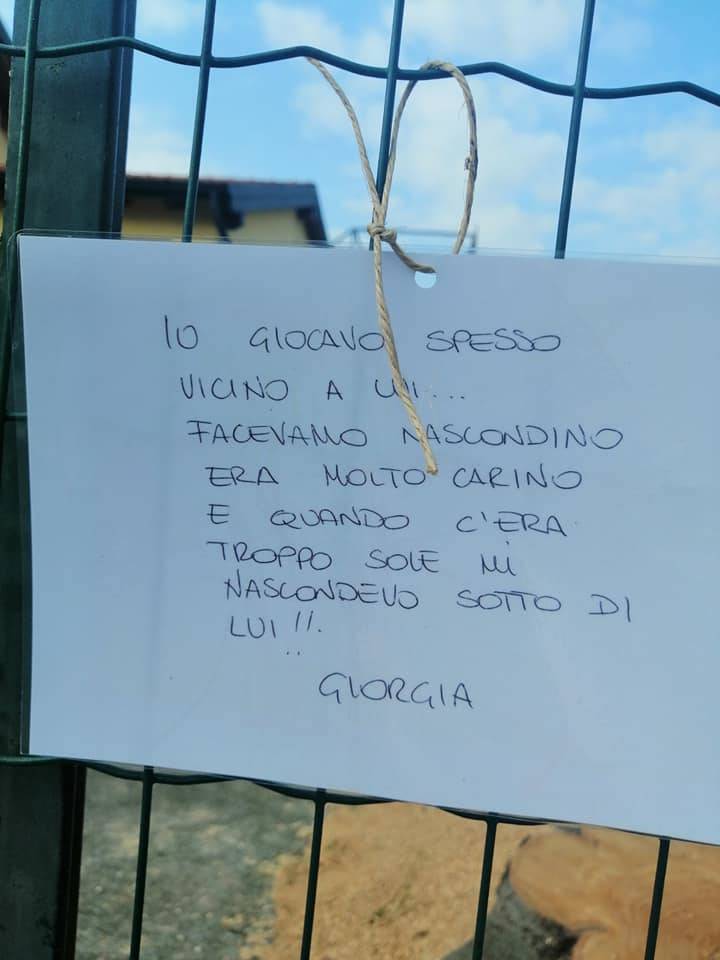 IO GIOCAVO SPESSO
VICINO A LUI...
FACEVAMO NASCONDINO
ERA MOLTO CARINO
E QUANDO C'ERA
TROPPO SOLE MI
NASCONDEVO SOTTO DI
LUI!!.
GIORGIA